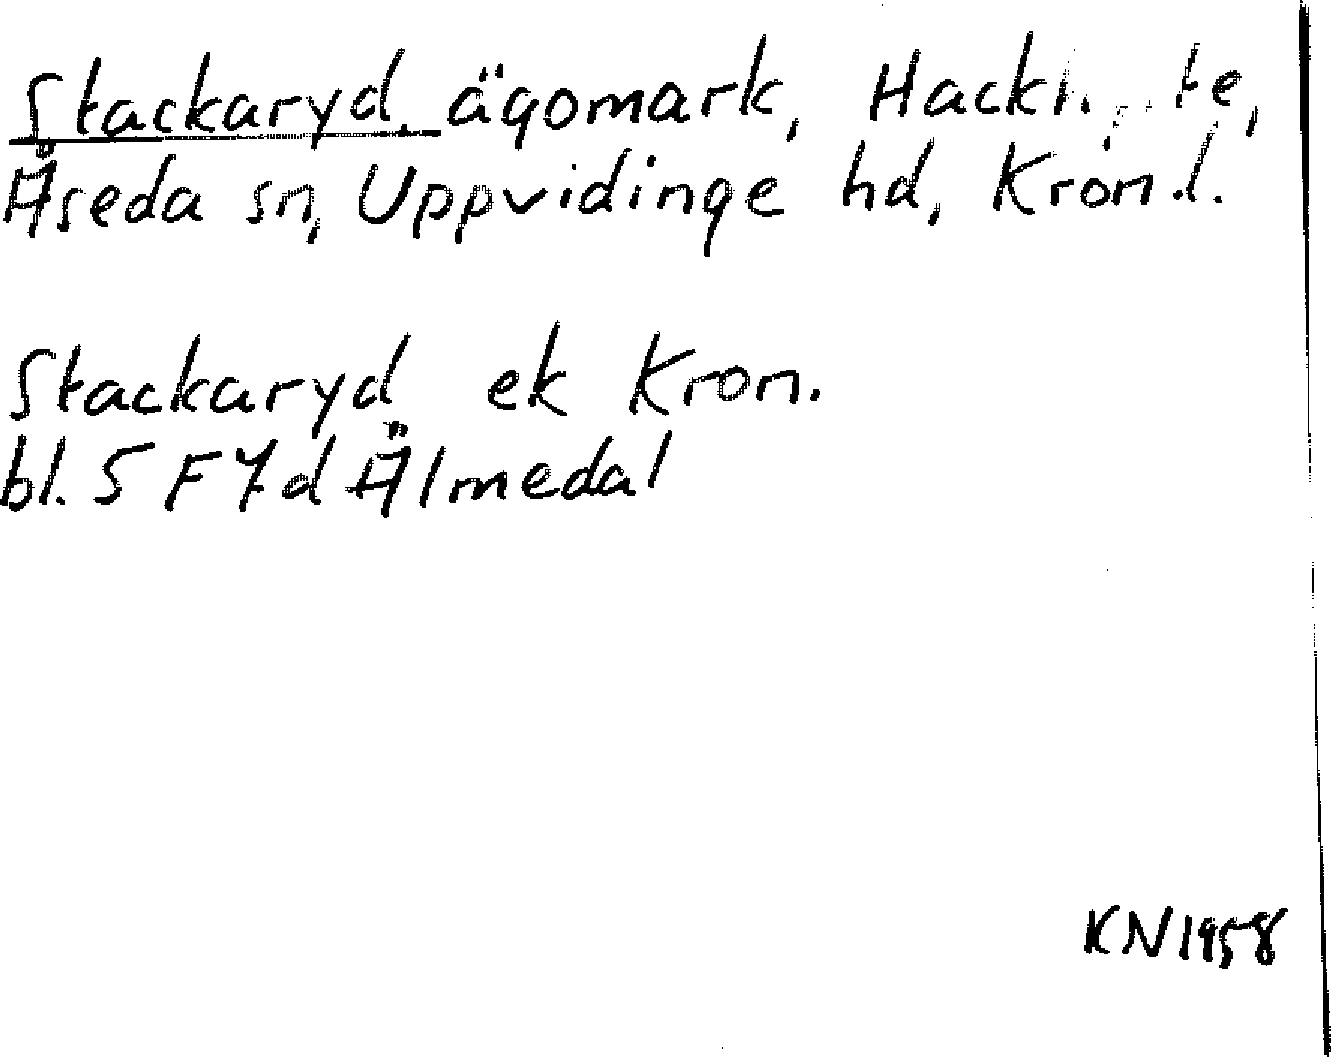 Stackaryd, ägomark,
Åseda sn, Uppvidinge hd, Kron.l.
Stackaryd ek Kron.
bl. 5 F 7d Älmedal
KN 1958